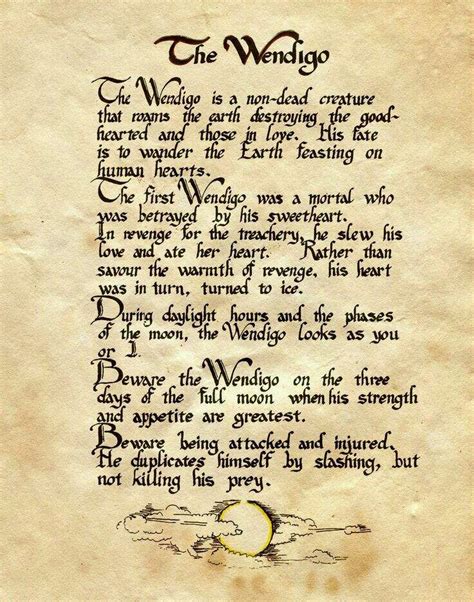 The Wendigo
The Wendigo is a non-dead creature
that roams the earth destroying the good-
hearted and those in love. His fate
is to wander the Earth feasting on
human hearts.
The first Wendigo was a mortal who
was betrayed by his sweetheart.
In revenge for the treachery, he slew his
love and ate her heart. Rather than
savour the warmth of revenge, his heart
was in turn, turned to ice.
During daylight hours and the phases
of the moon, the Wendigo looks as you
or I.
Beware the Wendigo on the three
days of the full moon when his strength
and appetite are greatest.
Beware being attacked and injured.
He duplicates himself by slashing, but
not killing his prey.